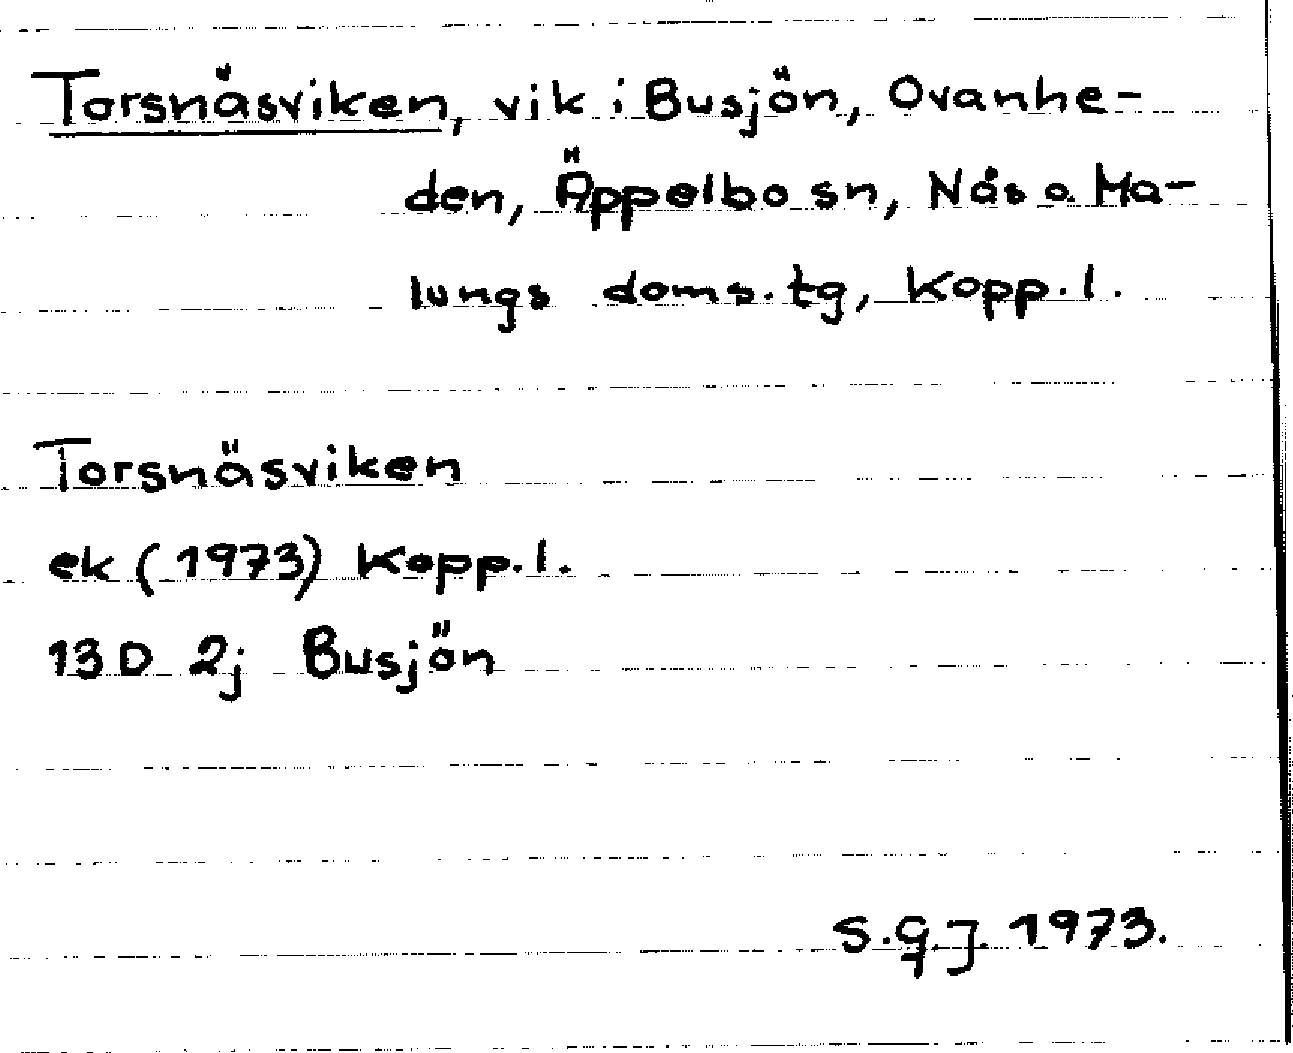 Torsnäsviken, vik i Busjön, Ovanhe-
den, Äppelbo sn, Nås o. Ma-
lungs doms.tg, Kopp.l.
Torsnäsviken
ek (1973) Kopp.l.
13D 2j Busjön
S.G.J. 1973.